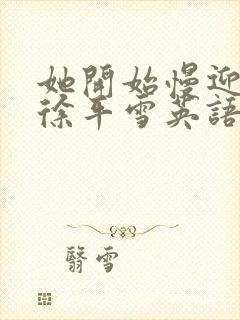 她開始慢迎
徐平雪英語
翳雪